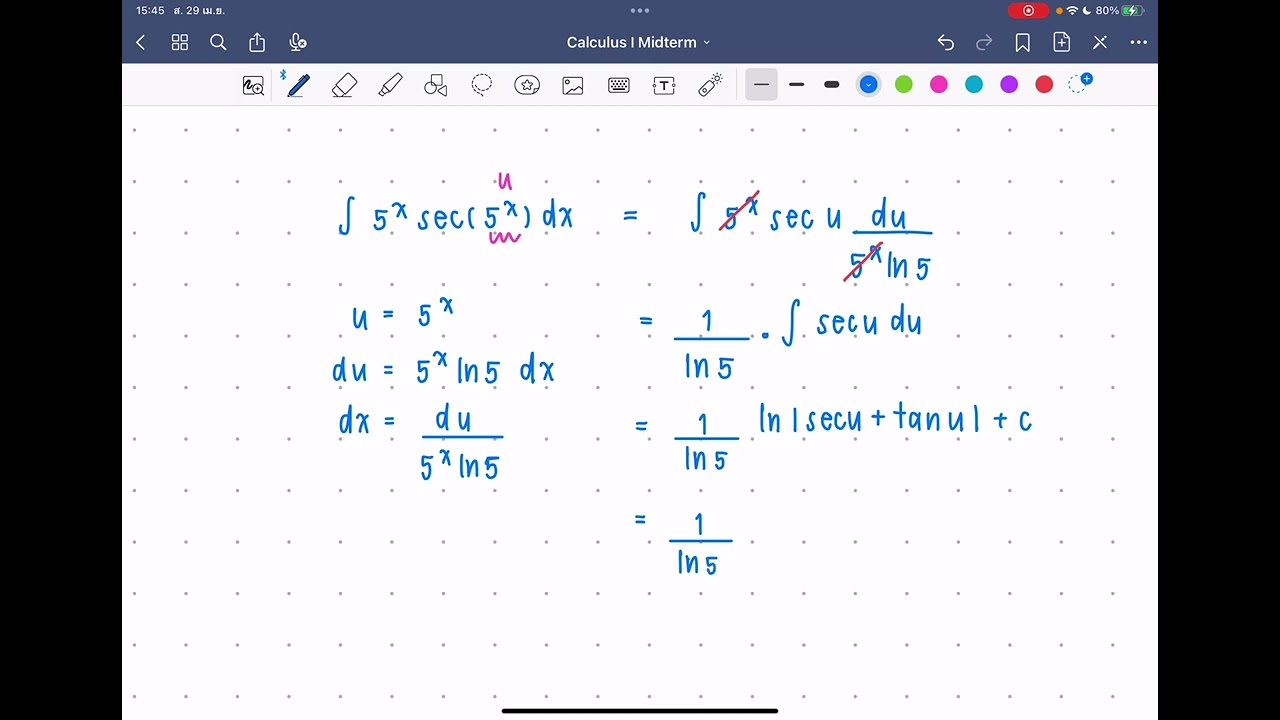 15:45 ส. 29 เม.ย. 80%
Calculus I Midterm
T
u
∫ 5^x sec(5^x) dx = ∫ 5^x sec u du / 5^x ln 5
u = 5^x
du = 5^x ln 5 dx
dx = du / 5^x ln 5
= 1 / ln 5 · ∫ sec u du
= 1 / ln 5 ln | sec u + tan u | + c
= 1 / ln 5